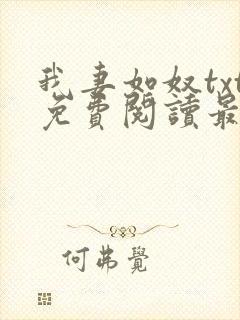 我妻如奴txt
免費閱讀最
何弗覺